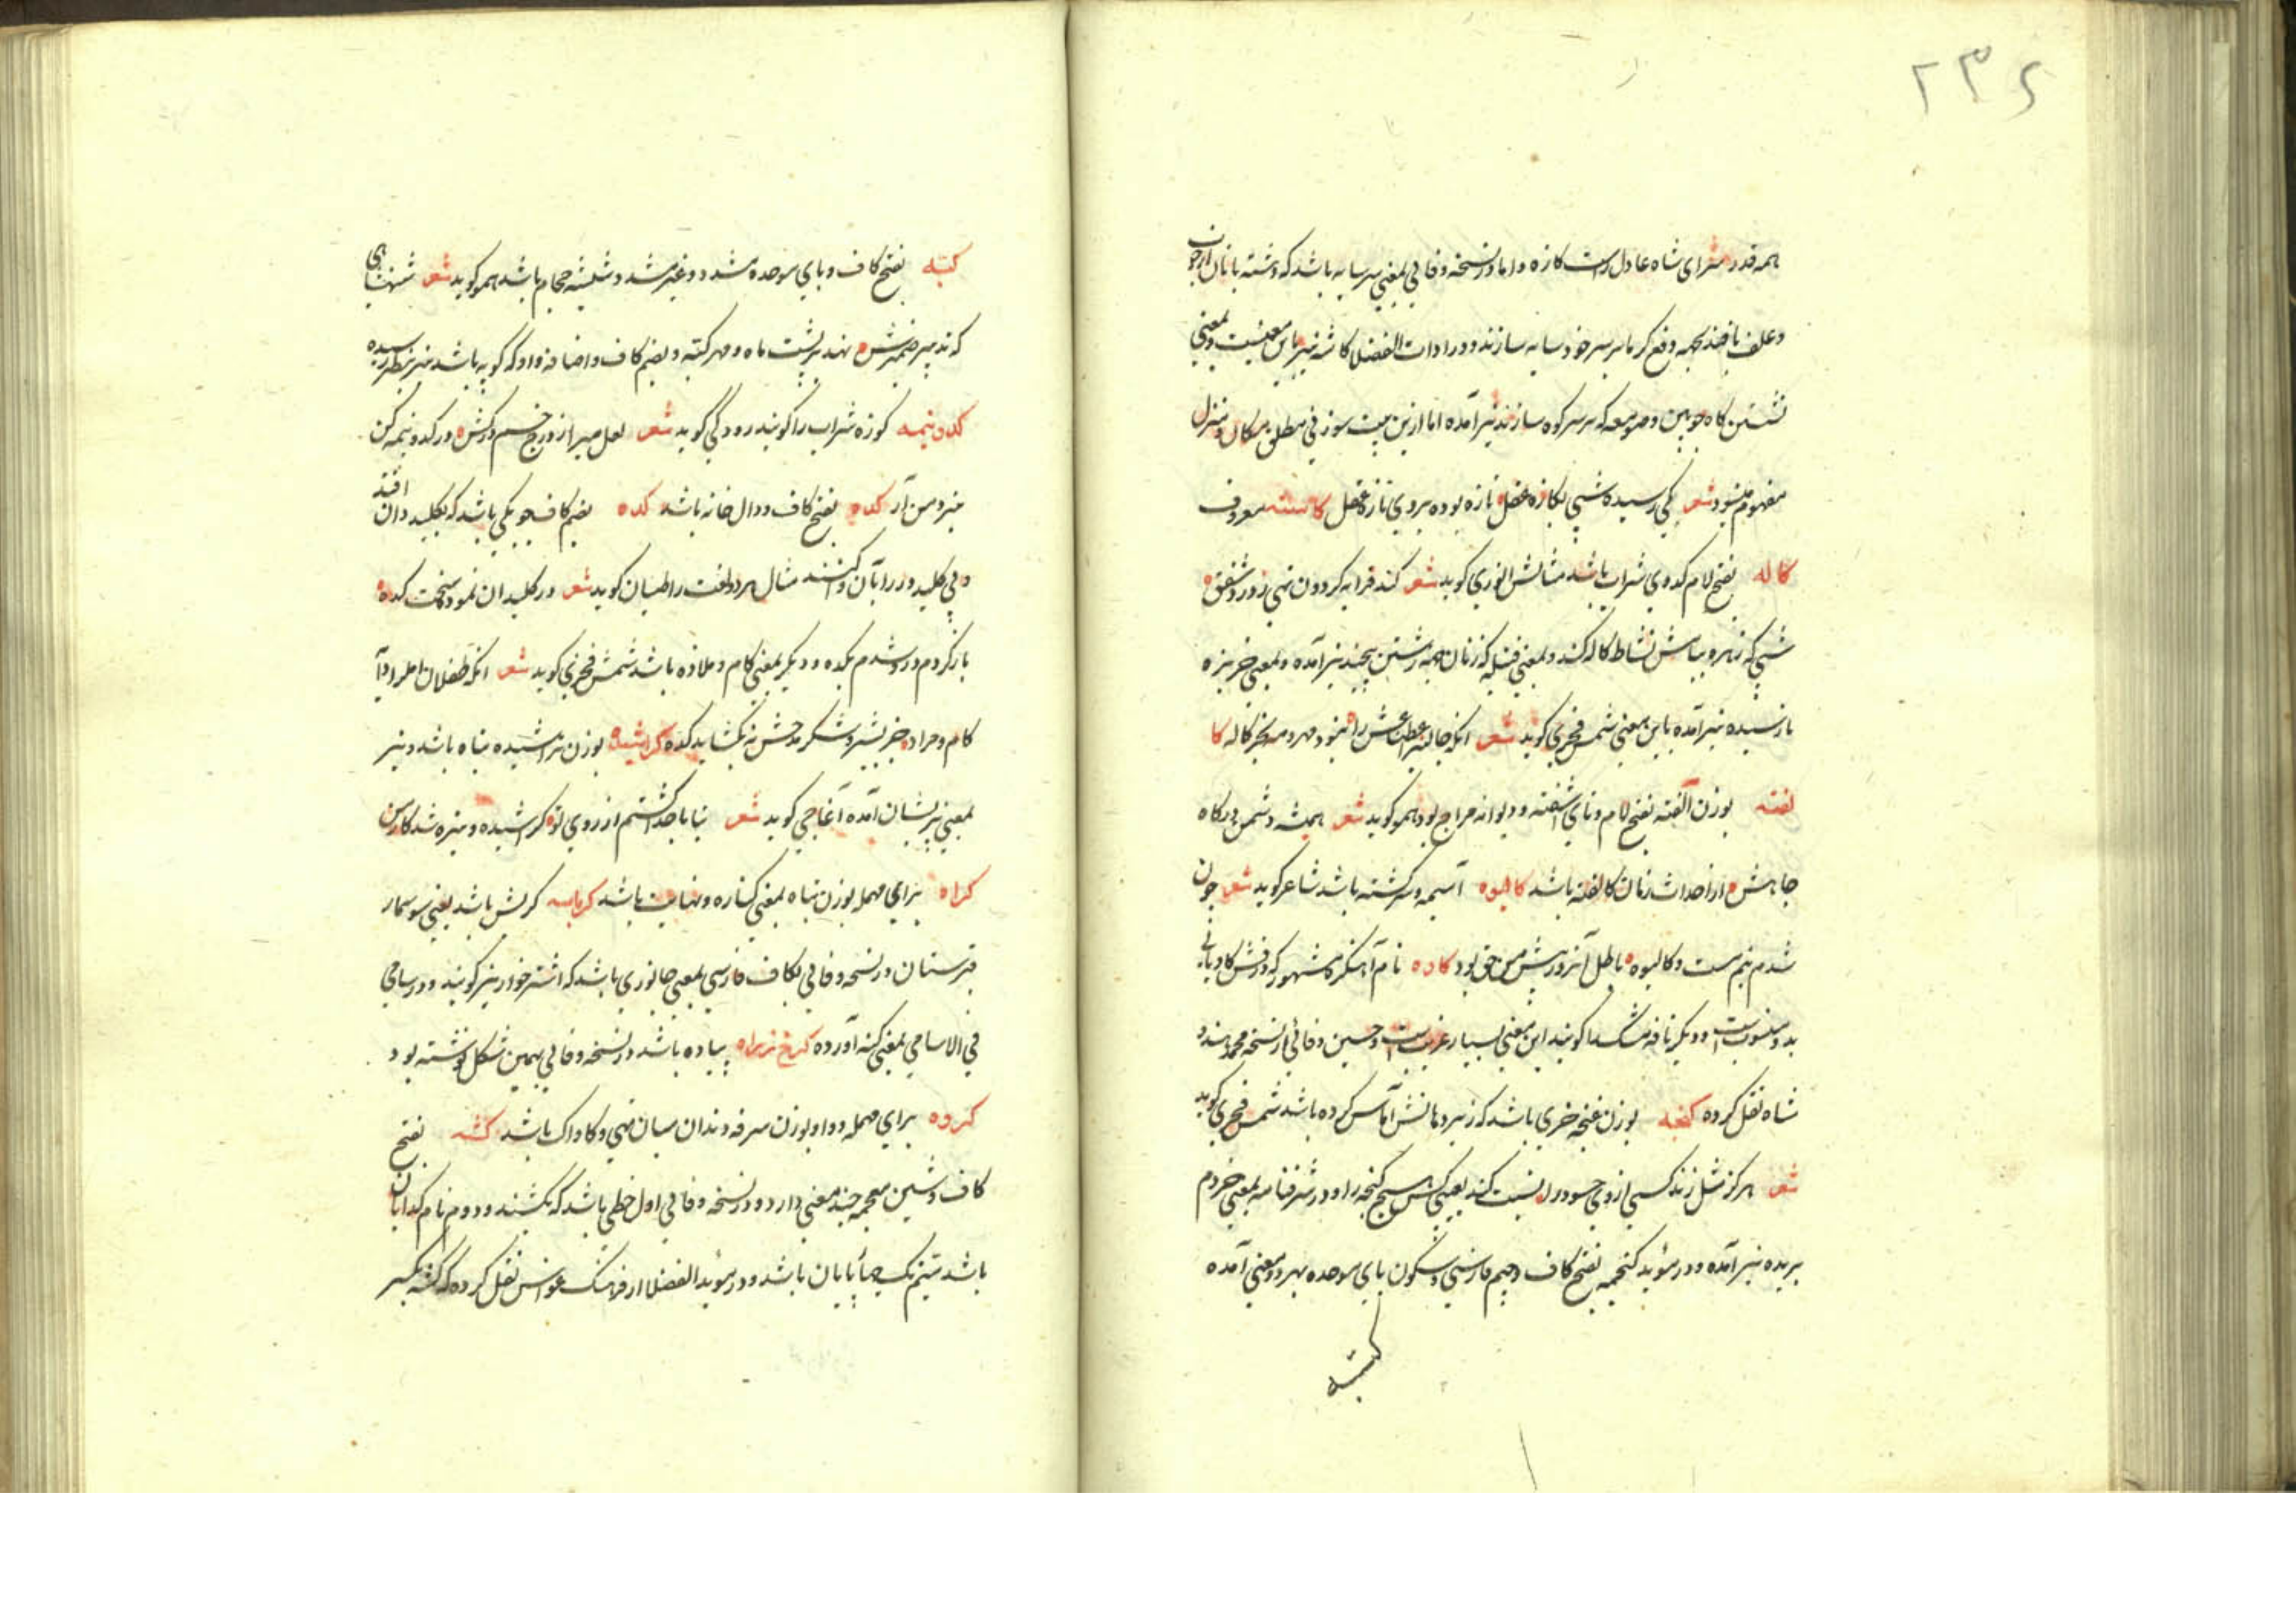 ۲۳۶
همه قدر سرای شاه عادل راست کازه و اما در نسخه وفایی بمعنی سر سایه باشد که دشتبانان از چوب
و علف بافند بجهه دفع گرما بر سر خود سایه سازند و در ادات الفضلا کاشه نیز باین معنیست و بمعنی
نشستن کاه چوبین و صومعه که بر سر کوه سازند نیز آمده اما ازین بیت سوزنی مطلق مکان و منزل
مفهوم میشود شعر یکی رسیده شبی بکازه غفل تازه بوده بروی تازه غفل کاسه معروف
کاله بفتح لام کدوی شراب باشد مثالش انوری گوید شعر کند قرابه گردون تهی زور شفق
شبی که زهره بیادش نشاط کاله کند و بمعنی فتیله که زنان بجهه رشتن پیچند نیز آمده و بمعنی خربزه
نارسیده نیز آمده باین معنی شمس فخری گوید شعر آنکه جالیز عطاش را بود مهر و مه بجز کاله کا
لفته بوزن آلفته بفتح لام و تای آشفته و دیوانه مزاج بود همو گوید شعر همیشه دشمن درگاه
جاهش از احداث زمان کالفته باشد کالیوه آسیمه و سرگشته باشد شاعر گوید شعر چون
شدم نیم مست و کالیوه باطل آنزد پیش من حق بود کاوه نام آهنگر مشهور که درفش کاویانی
بدو منسوبست و دیگر نافه مشک را گویند این معنی بسیار غریبست و حسین وفائی از نسخه محمد هندو
شاه نقل کرده کنجه بوزن غنچه خری باشد که زیر دهانش آماس کرده باشد شمس فخری گوید
شعر هرگز مثل زند کسی از وی حسود را نسبت کند بعیسی کس هیچ کنجه را و در شرفنامه بمعنی خر دم
بریده نیز آمده و در مؤید کبجه بفتح کاف و جیم فارسی و سکون بای موحده بهر دو معنی آمده
کبته
کبته بفتح کاف و بای موحده مشدد و غیر مشدد شیشه حجام باشد همو گوید شعر شهنشاهی
که تدبیر ضمیرش نهد بر پشت ماه و مهر کبته و بضم کاف و اضافه واو که کوپه باشد نیز بنظر رسیده
کدونیمه کوزه شراب را گویند رودکی گوید شعر لعل می را ز درج خم برکش در کدونیمه کن
بنزد من آر کده بفتح کاف و دال خانه باشد کده بضم کاف چوبکی باشد که بکلیدان افتد
و بی کلید در را بآن نگشایند مثال هر دو لغت را طیان گوید شعر در کلیدان نمود سخت کده
باز کردم در و شدم بکده و دیگر بمعنی کام و ملازه باشد شمس فخری گوید شعر آنکه طفلان امل را دایه
کام و مراد جز بشیر و شکر مدحش نه بگشاید کده کراشیده بوزن تراشیده تباه باشد و نیز
بمعنی پریشان آمده آغاجی گوید شعر بتا تا جدا گشتم از روی تو کراشیده و تیره شد کار من
کراه برای مهمله بوزن تباه بمعنی کناره و نهایت باشد کرباسه کربش باشد یعنی سوسمار
قبرستان در نسخه وفایی بکاف فارسی بمعنی جانوری باشد که اشتر خوار نیز گویند و در سامی
فی الاسامی بمعنی کنه آورده پیاده باشد در نسخه وفایی بهمین شکل نوشته بود
کروه برای مهمله و واو بوزن صرفه دندان میان تهی و کاواک باشد کشه بفتح
کاف و شین معجمه چند معنی دارد و در نسخه وفایی اول خطی باشد که بکشند و دوم نام گدایان
باشد سیم تنک چاپایان باشد و در مؤید الفضلا از فرهنگ قواس نقل کرده که کشه بکسر